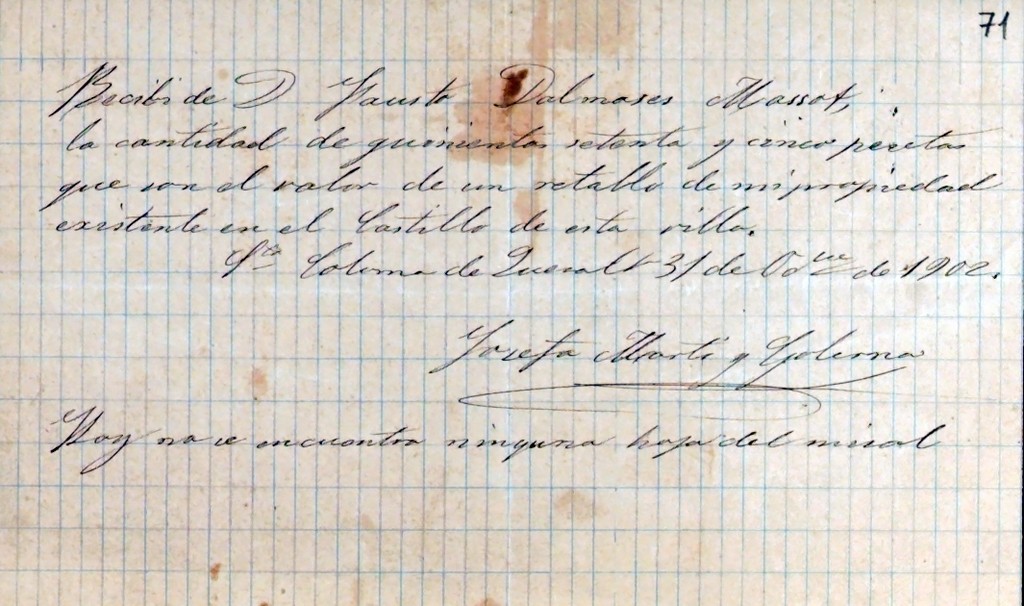 71
Recibi de D Fausto Dalmases Massot,
la cantidad de quinientas setenta y cinco pesetas
que son el valor de un retallo de mi propiedad
existente en el Castillo de esta villa.
Sta Coloma de Queralt 31 de de 1902.
Josefa Marti y Coloma
Hoy no se encuentra ninguna hoja del misal